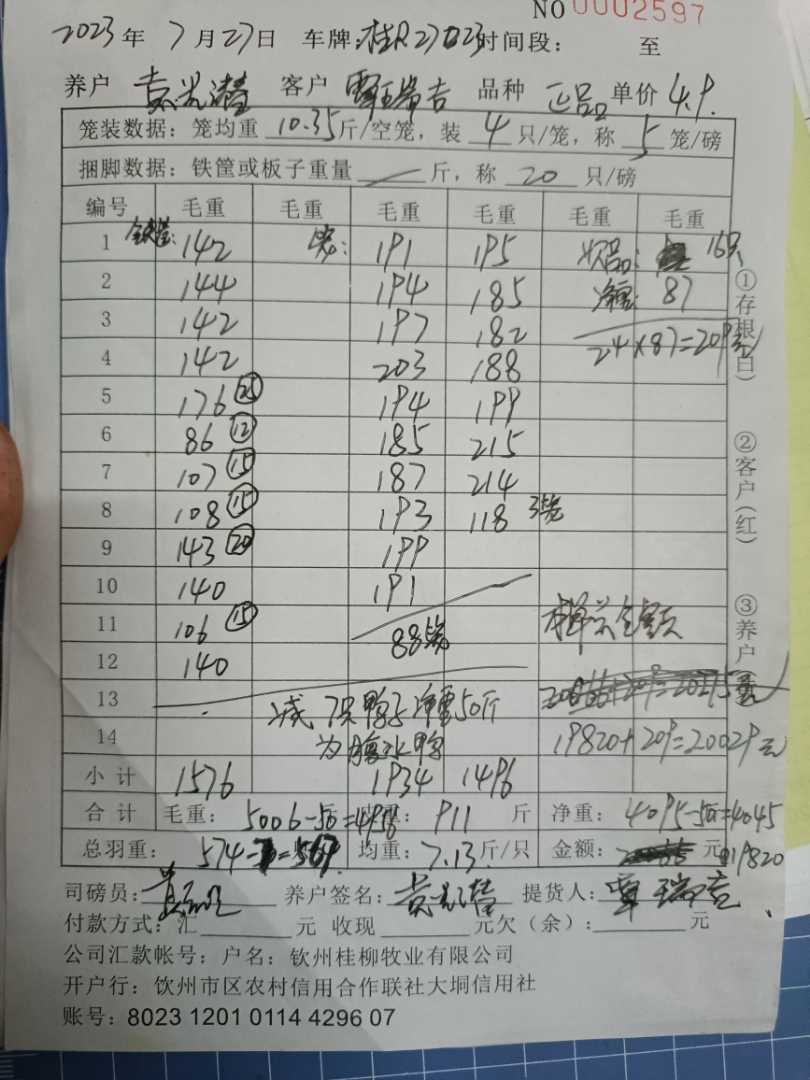 NO 0002597
2023年 7月27日 车牌:桂R27023时间段: 至
养户 黄光潜 客户 覃瑞吉 品种 正品 单价 4.9
笼装数据:笼均重 10.35斤/空笼,装 4 只/笼,称 5 笼/磅
捆脚数据:铁筐或板子重量 斤,称 20 只/磅
编号 毛重 毛重 毛重 毛重 毛重 毛重
1 142 笼: 191 195 次品: 16只
2 144 194 185 净重: 87
3 142 197 182
4 142 203 188 24×87=209元
5 176 25 194 199
6 86 12 185 215
7 107 15 187 214
8 108 15 193 118 3笼
9 143 20 199
10 140 191
11 106 15 88笼
12 140
13 减7只鸭子净重50斤
14 为腹水鸭 19820+209=20029元
小计 1576 1934 1496
合计 毛重: 5006-50= 911 斤 净重: 4095-50=4045
总羽重: 574-7=567 均重:7.13斤/只 金额: 元 19820
司磅员: 养户签名:黄光潜 提货人:覃瑞吉
付款方式:汇 元 收现 元欠(余): 元
公司汇款帐号:户名:钦州桂柳牧业有限公司
开户行:饮州市区农村信用合作联社大垌信用社
账号:8023 1201 0114 4296 07
①存根(白)
②客户(红)
③养户